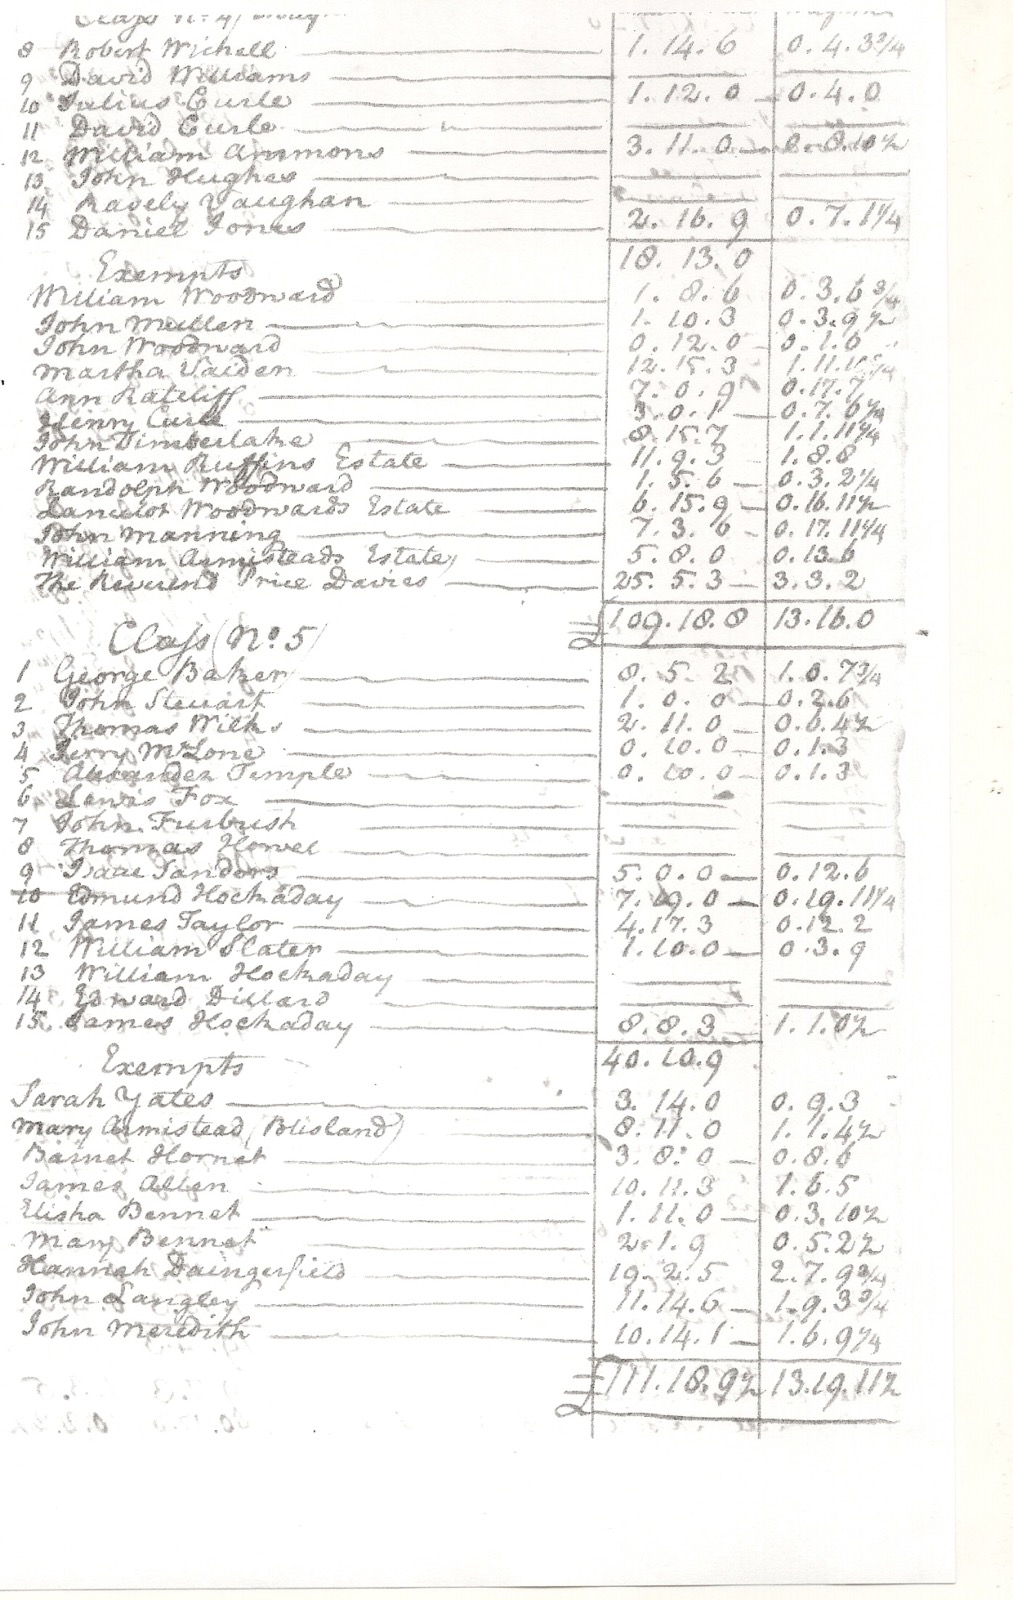 Class No. 4
8 Robert Wichell 1. 14. 6 0. 4. 3 3/4
9 David Williams
10 Julius Curle 1. 12. 0 0. 4. 0
11 David Curle
12 William Ammons 3. 11. 0 0. 8. 10 1/2
13 John Hughes
14 Ravely Vaughan
15 Daniel Jones 2. 16. 9 0. 7. 1 1/4
Exempts 18. 13. 0
William Woodward 1. 8. 6 0. 3. 6 3/4
John Mullen 1. 10. 3 0. 3. 9 1/2
John Woodward 0. 12. 0 0. 1. 6
Martha Vaiden 12. 15. 3 1. 11.
Ann Ratcliff 7. 0. 9 0. 17. 7
Henry Curle 3. 0. 1 0. 7. 6 1/4
John Timberlake 8. 15. 7 1. 1. 11 1/4
William Ruffins Estate 11. 9. 3 1. 8. 8
Randolph Woodward 1. 5. 6 0. 3. 2 1/4
Lancelot Woodwards Estate 6. 15. 9 0. 16. 11 1/2
John Manning 7. 3. 6 0. 17. 11 1/4
William Armisteads Estate 5. 8. 0 0. 13. 6
The Reverend Price Davies 25. 5. 3 3. 3. 2
£ 109. 18. 8 13. 16. 0
Class (No. 5)
1 George Baker 8. 5. 2 1. 0. 7 3/4
2 John Steuart 1. 0. 0 0. 2. 6
3 Thomas Wilks 2. 11. 0 0. 6. 4 1/2
4 Jerry McLone 0. 10. 0 0. 1. 3
5 Alexander Temple 0. 10. 0 0. 1. 3
6 Lewis Fox
7 John Furbush
8 Thomas Howel
9 Isaac Sanders 5. 0. 0 0. 12. 6
10 Edmund Hockaday 7. 19. 0 0. 19. 11 1/4
11 James Taylor 4. 17. 3 0. 12. 2
12 William Slater 1. 10. 0 0. 3. 9
13 William Hockaday
14 Edward Dillard
15 James Hockaday 8. 8. 3 1. 1. 0 1/2
Exempts 40. 10. 9
Sarah Yates 3. 14. 0 0. 9. 3
Mary Armistead (Blisland) 8. 11. 0 1. 1. 4 1/2
Barnet Hornet 3. 8. 0 0. 8. 6
James Allen 10. 11. 3 1. 6. 5
Elisha Bennet 1. 11. 0 0. 3. 10 1/2
Mary Bennet 2. 1. 9 0. 5. 2 1/2
Hannah Daingerfield 19. 2. 5 2. 7. 9 3/4
John Langley 11. 14. 6 1. 9. 3 3/4
John Meredith 10. 14. 1 1. 6. 9 1/4
£ 111. 18. 9 1/2 13. 19. 11 1/2